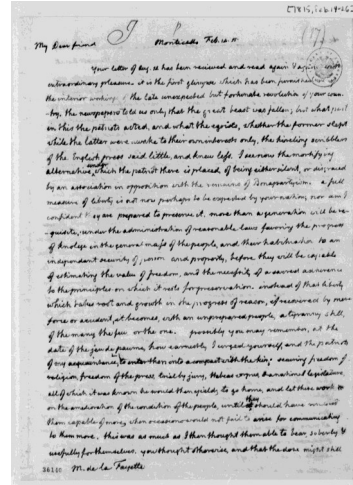 [1815, Feb 14-26]
(17)
My Dear friend Monticello Feb. 14. 15.
Your letter of Aug. 14 has been recieved and read again & again with
extraordinary pleasure. it is the first glimpse which has been furnished
the interior workings of the late unexpected but fortunate revolution of your coun-
-try. the newspapers told us only that the great beast was fallen; but what part
in this the patriots acted, and what the egoists, whether the former slept
while the latter were awake to their own interests only, the hireling scribblers
of the English press said little, and knew less. I see now the mortifying
alternative under which the patriot there is placed, of being either silent, or disgraced
by an association in opposition with the remains of Bonapartyism. a full
measure of liberty is not now perhaps to be expected by your nation; nor am I
confident they are prepared to preserve it. more than a generation will be re-
quisite, under the administration of reasonable laws favoring the progress
of knolege in the general mass of the people, and their habituation to an
independant security of person and property, before they will be capable
of estimating the value of freedom, and the necessity of a sacred adherence
to the principles on which it rests for preservation. instead of that liberty
which takes root and growth in the progress of reason, if recovered by mere
force or accident, it becomes, with an unprepared people, a tyranny still,
of the many, the few or the one. possibly you may remember, at the
date of the jeu de paume, how earnestly I urged yourself, and the patriots
of my acquaintance, to enter then into a compact with the king, securing freedom of
religion, freedom of the press, trial by jury, Habeas corpus, & a national legislature,
all of which it was known he would then yield; to go home, and let these work
on the amelioration of the condition of the people, until they should have rendered
them capable of more, when occasions would not fail to arise for communicating
to them more. this was as much as I then thought them able to bear, soberly &
usefully for themselves. you thought otherwise, and that the dose might still
36140 M. de la Fayette